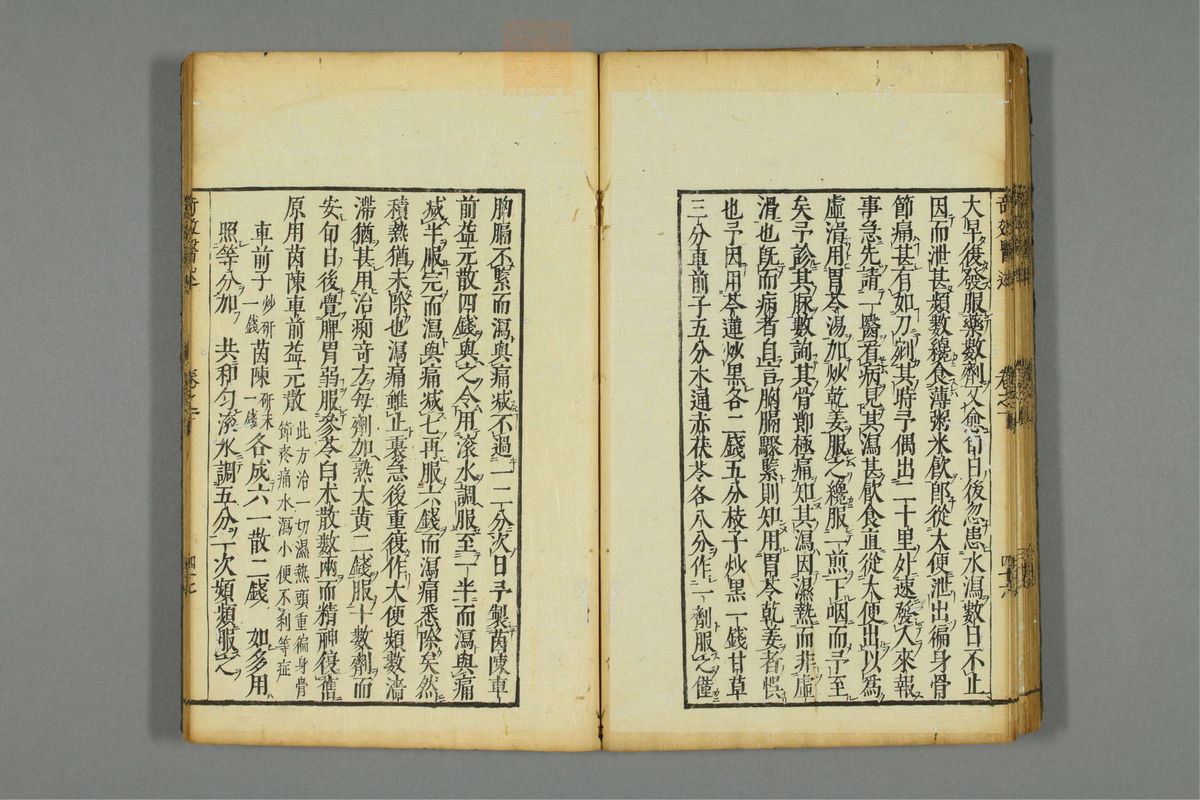 大早復發服藥數劑又愈旬日後忽患水瀉數日不止
因而泄甚頻數纔食薄粥米飲即從大便泄出徧身骨
節痛甚有如刀刴其時予偶出二十里外速發人來報
事急先請一醫看病見其瀉甚飲食直從大便出以為
虛滑用胃苓湯加炒乾姜服之纔服一煎下咽而予至
矣予診其脉數詢其骨節極痛知其瀉因濕熱而非虛
滑也既而病者自言胸膈驟緊則知用胃苓乾姜者悞
也予因用芩連炒黑各二錢五分枝子炒黑一錢甘草
三分車前子五分木通赤茯苓各八分作一劑服之僅
胸膈不緊而瀉與痛减不過一二分次日予製茵陳車
前益元散四錢與之令用滚水調服至一半而瀉與痛
减半服完而瀉與痛减七再服六錢而瀉痛悉除矣然
積熱猶未除也瀉痛雖止裏急後重復作大便頻數濇
滯猶甚用治痢奇方每劑加熟大黄二錢服十數劑而
安旬日後覺脾胃弱服參苓白术散數兩而精神復舊
原用茵陳車前益元散 此方治一切濕熱頭重徧身骨
節疼痛水瀉小便不利等症
車前子 炒研一錢 茵陳 研末一錢 各成六一散二錢 如多用
照等分加 共和匀滚水調五分一次頻頻服之